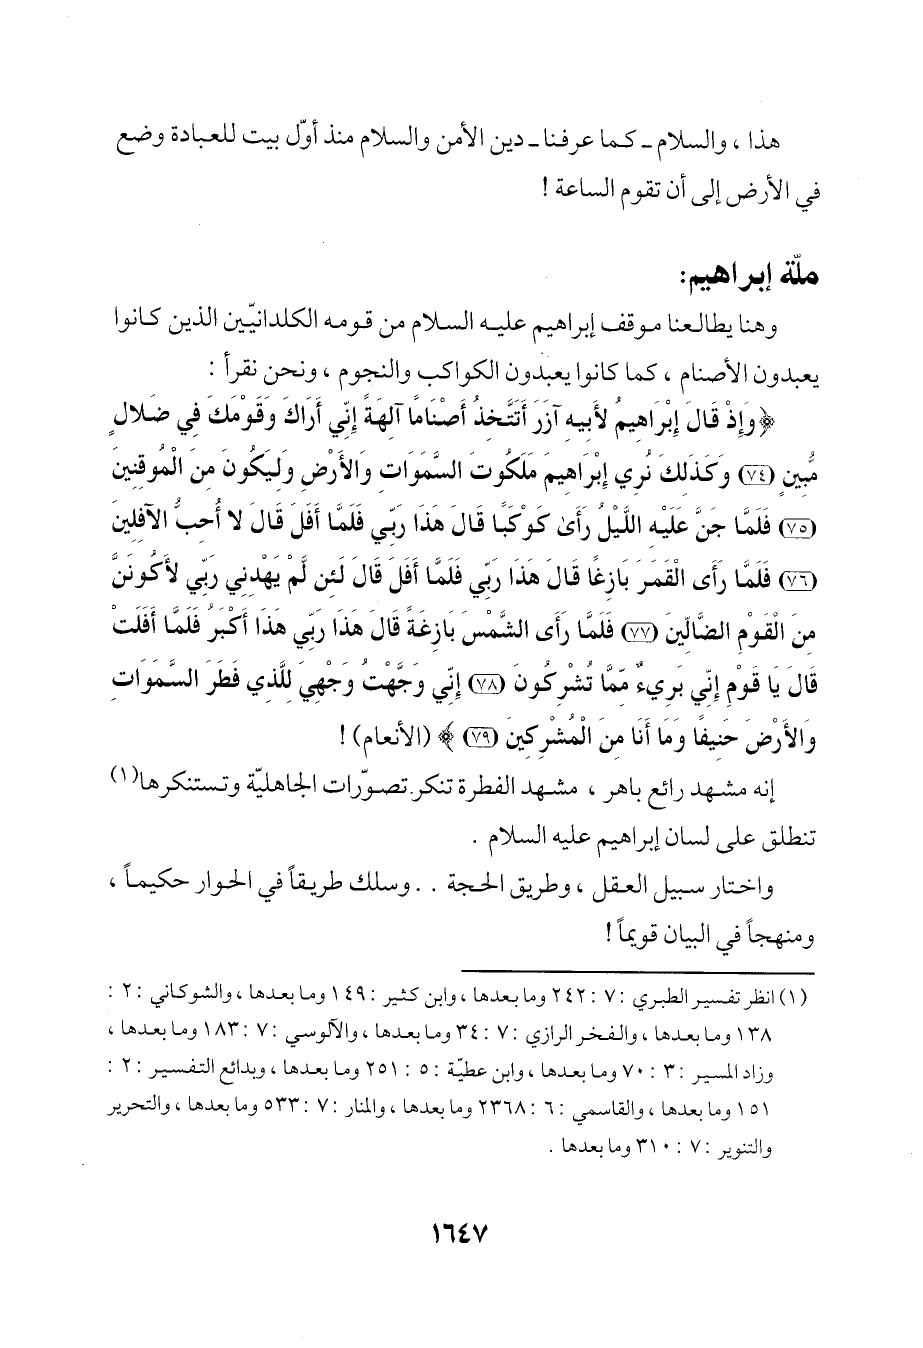 هذا ، والسلام ـ كما عرفنا ـ دين الأمن والسلام منذ أوّل بيت للعبادة وضع
في الأرض إلى أن تقوم الساعة !
ملّة إبراهيم:
وهنا يطالعنا موقف إبراهيم عليه السلام من قومه الكلدانيّين الذين كانوا
يعبدون الأصنام ، كما كانوا يعبدون الكواكب والنجوم ، ونحن نقرأ :
﴿وَإِذْ قَالَ إِبْرَاهِيمُ لأَبِيهِ آزَرَ أَتَتَّخِذُ أَصْنَاماً آلِهَةً إِنِّي أَرَاكَ وَقَوْمَكَ فِي ضَلالٍ
مُّبِينٍ (٧٤) وَكَذَلِكَ نُرِي إِبْرَاهِيمَ مَلَكُوتَ السَّمَوَاتِ وَالأَرْضِ وَلِيَكُونَ مِنَ الْمُوقِنِينَ
(٧٥) فَلَمَّا جَنَّ عَلَيْهِ اللَّيْلُ رَأَىٰ كَوْكَبًا قَالَ هَذَا رَبِّي فَلَمَّا أَفَلَ قَالَ لا أُحِبُّ الآفِلِينَ
(٧٦) فَلَمَّا رَأَى الْقَمَرَ بَازِغًا قَالَ هَذَا رَبِّي فَلَمَّا أَفَلَ قَالَ لَئِن لَّمْ يَهْدِنِي رَبِّي لأَكُونَنَّ
مِنَ الْقَوْمِ الضَّالِّينَ (٧٧) فَلَمَّا رَأَى الشَّمْسَ بَازِغَةً قَالَ هَذَا رَبِّي هَذَا أَكْبَرُ فَلَمَّا أَفَلَتْ
قَالَ يَا قَوْمِ إِنِّي بَرِيءٌ مِّمَّا تُشْرِكُونَ (٧٨) إِنِّي وَجَّهْتُ وَجْهِيَ لِلَّذِي فَطَرَ السَّمَوَاتِ
وَالأَرْضَ حَنِيفًا وَمَا أَنَا مِنَ الْمُشْرِكِينَ (٧٩)﴾ (الأنعام) !
إنه مشهد رائع باهر ، مشهد الفطرة تنكر تصوّرات الجاهليّة وتستنكرها(١)
تنطلق على لسان إبراهيم عليه السلام .
واختار سبيل العقل ، وطريق الحجة . . وسلك طريقاً في الحوار حكيماً ،
ومنهجاً في البيان قويماً !
(١) انظر تفسير الطبري : ٧ : ٢٤٢ وما بعدها ، وابن كثير : ١٤٩ وما بعدها ، والشوكاني : ٢ :
١٣٨ وما بعدها ، والفخر الرازي : ٧ : ٣٤ وما بعدها ، والآلوسي : ٧ : ١٨٣ وما بعدها ،
وزاد المسير : ٣ : ٧٠ وما بعدها ، وابن عطيّة : ٥ : ٢٥١ وما بعدها ، وبدائع التفسير : ٢ :
١٥١ وما بعدها ، والقاسمي : ٦ : ٢٣٦٨ وما بعدها ، والمنار : ٧ : ٥٣٣ وما بعدها ، والتحرير
والتنوير : ٧ : ٣١٠ وما بعدها .
١٦٤٧